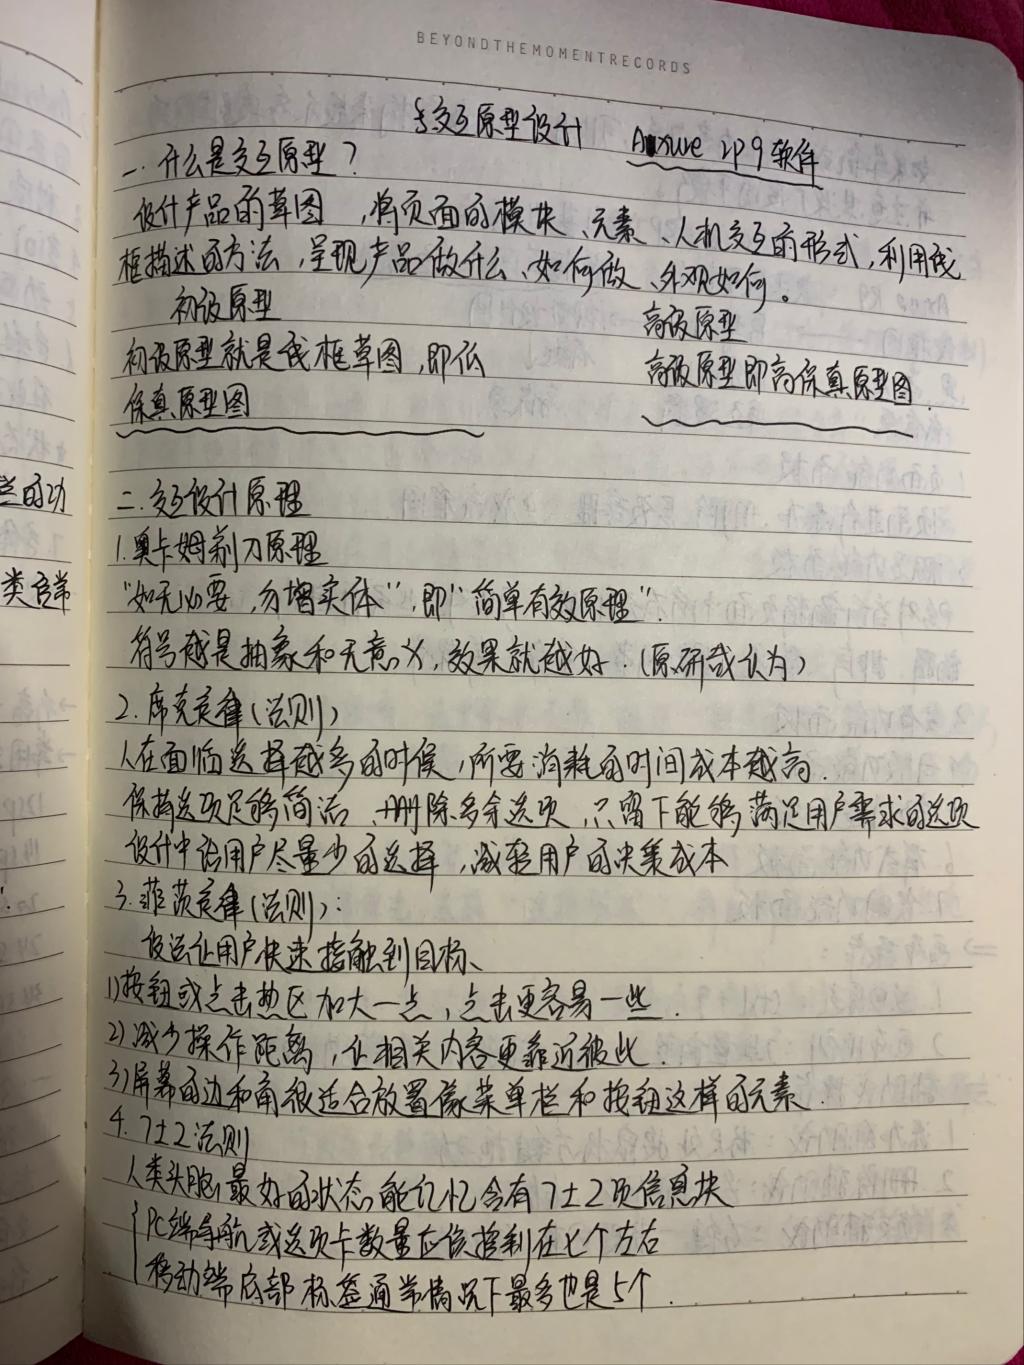 BEYONDTHEMOMENTRECORDS
§交互原型设计 Auxure rp9软件
一.什么是交互原型?
设计产品的草图,将页面的模块、元素、人机交互的形式,利用线
框描述的方法,呈现产品做什么、如何做、外观如何。
初级原型 高级原型
初级原型就是线框草图,即低 高级原型即高保真原型图.
保真原型图
二.交互设计原理
1.奥卡姆剃刀原理
"如无必要,勿增实体",即"简单有效原理".
符号越是抽象和无意义,效果就越好.(原研哉认为)
2.席克定律(法则)
人在面临选择越多的时候,所要消耗的时间成本越高.
保持选项足够简洁,删除多余选项,只留下能够满足用户需求的选项
设计中给用户尽量少的选择,减轻用户的决策成本
3.菲茨定律(法则):
设法让用户快速接触到目标、
1)按钮或点击热区加大一点,点击更容易一些.
2)减少操作距离,让相关内容更靠近彼此.
3)屏幕的边和角很适合放置像菜单栏和按钮这样的元素.
4.7±2法则
人类头脑最好的状态能记忆含有7±2项信息块
PC端导航或选项卡数量应该控制在七个左右
移动端底部标签通常情况下最多也是5个.
栏的功
类启常